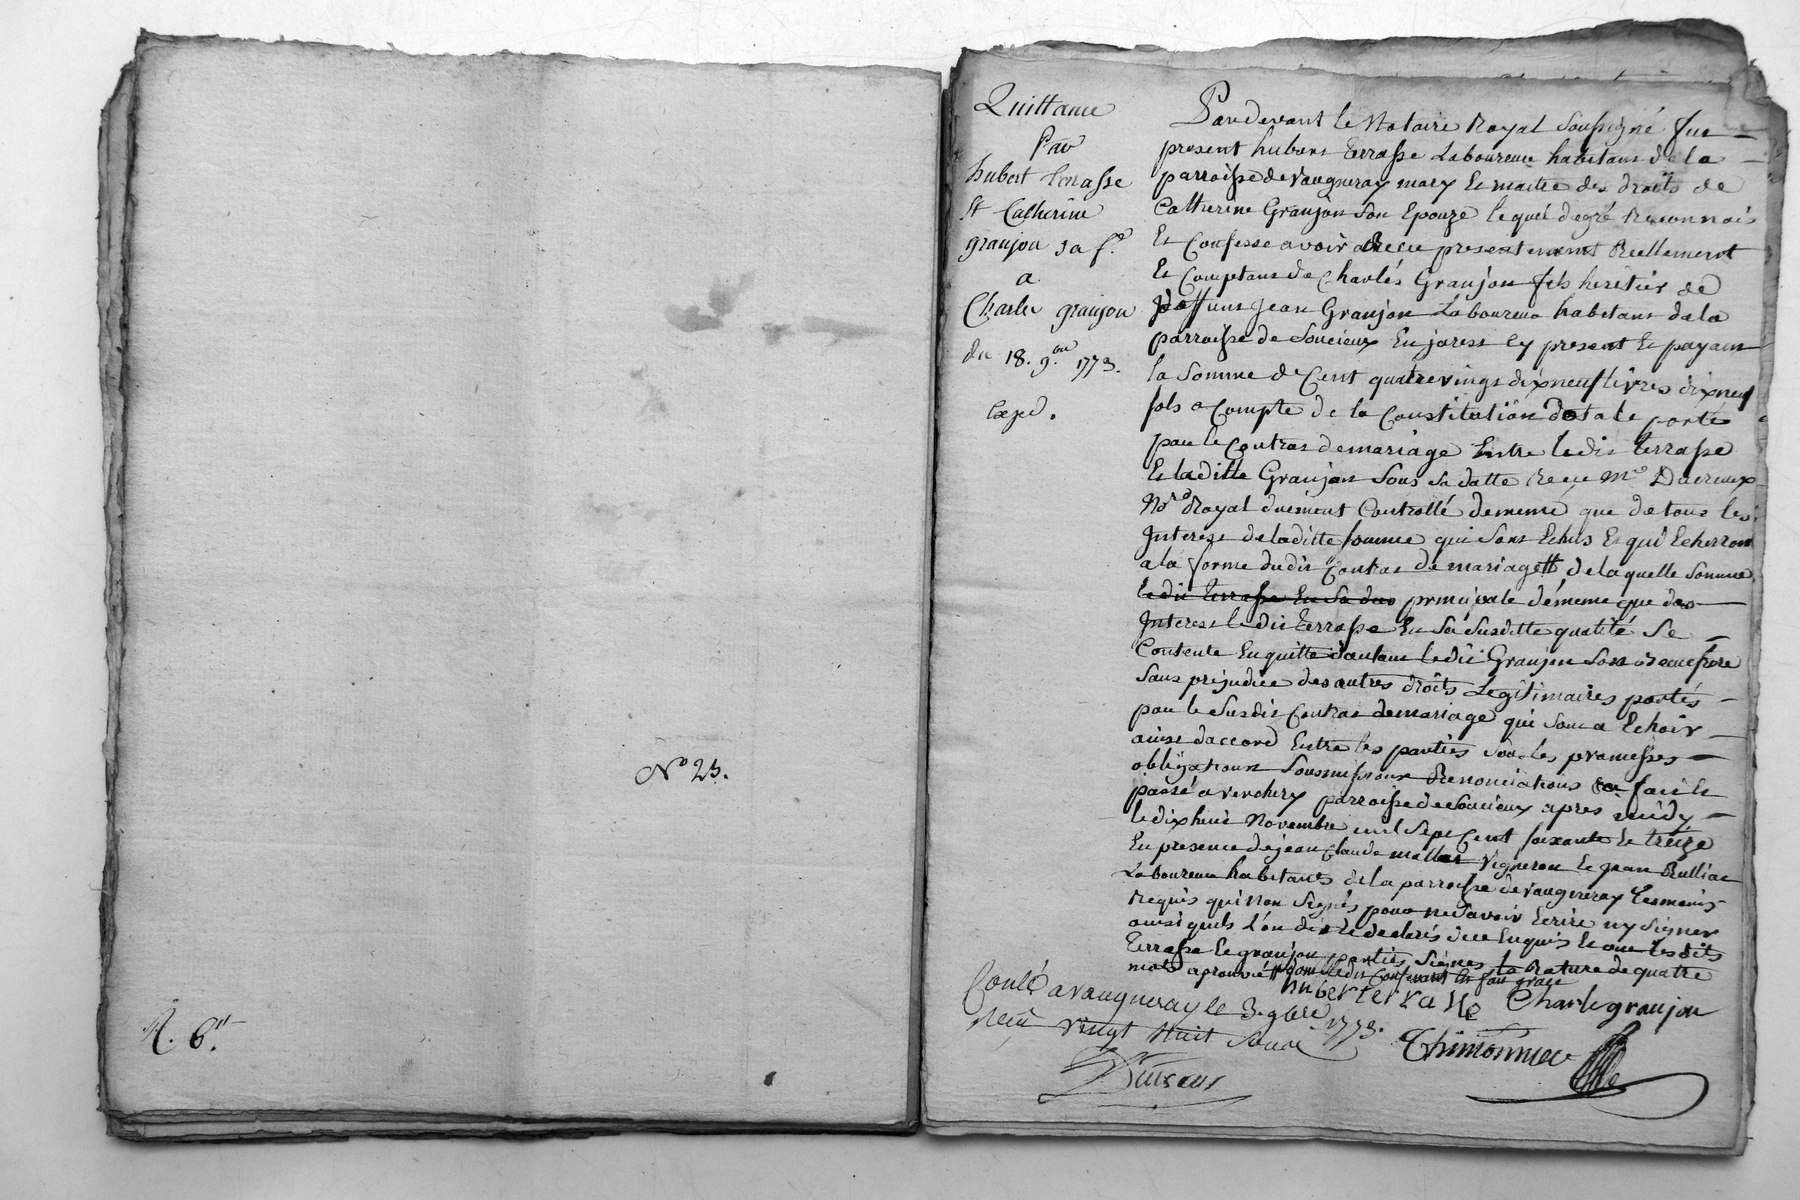 No 23.
R. 6.
Quittance
Par
hubert terrasse
et Catherine
granjon sa fe
a
Charles granjon
du 18. 9.bre 1773.
Exped.
Pardevant le Notaire Royal Soussigné fue
present hubert terrasse Laboureur habitant de la
parroisse de vaugneray mary Et maitre des droits de
Catherine Granjon Son Epouze lequel degré Reconnois
Et Confesse avoir Receu presentement Reellement
Et Comptant de Charles Granjon fils heretier de
deffunt jean Granjon Laboureur habitant dela
parroisse de Soucieux En jarest Cy present Et payant
la Somme de Cent quatrevings dixneuf livres dixneuf
sols a Compte de la Constitution Dotale porté
par le Contrat demariage Entre ledit terrasse
Et laditte Granjon Sous Sa datte Receu Me Ducreux
Nore Royal duement Controllé demême que detous les
Interest deladitte Somme qui Sont Echus Et qui Echerront
a la forme dudit Contrat de mariage delaquelle Somme
ledit terrasse En Sa principale démeme que des
Interest ledit terrasse En Sa Susditte qualité Se
Contente En quitte dautant ledit Granjon Son Beaufrere
Sans prejudice des autres droits Legitimaires portés
par le Susdit Contrat demariage qui Sont a Echoir
ainsi daccord Entre les parties Sous les promesses
obligations Soumissions Renonciations fait Et
passé a verchery parroisse de Soucieux apres midy
le dix huit Novembre mil Sept Cent Soixante Et treize
En presence de jean Claude Vigneron Et jean Rulliat
Laboureur habitants de la parroisse de vaugneray temoins
Requis qui non Signés pour ne Savoir Ecrire ny Signer
ainsi quils L'on dit Et declarés de ce Enquis Et ont lesdits
terrasse Et granjon parties Signés la Rature de quatre
mots aprouvé
huberterrasse Charle granjon
Conlé a vaugneray le 3. 9bre 1773.
Reçu vingt huit Sous
Thimonnier
Ducreux